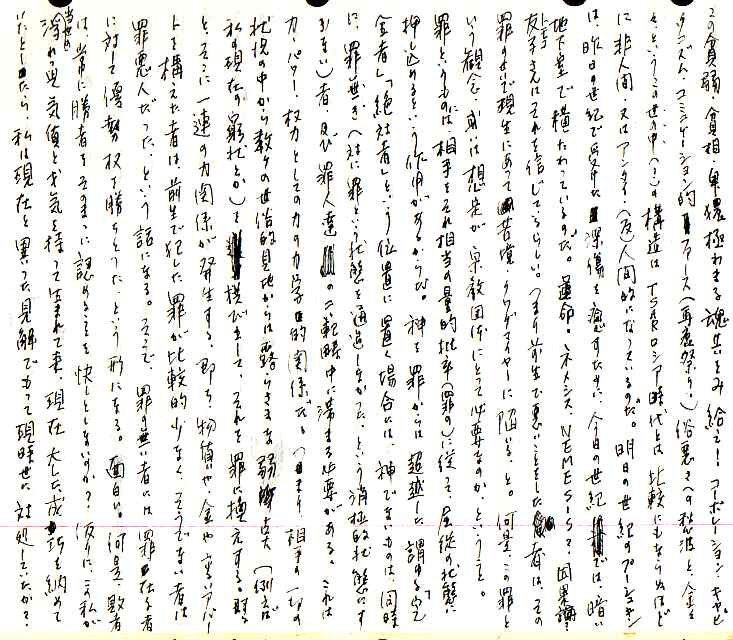 この貧弱・貧相・卑猥極わまる魂共をみ給え! コーポレーション・キャピ
タリズム、コミュニケーション的ファース(再魔祭り!)俗悪さへの秋波と、金と
、というこの世の中(?)の構造はTSARロシア時代とは比較にもならぬほど
に非人間・又はアンタイ・(反)人間的になっているのだ。明日の世紀のプーシキン
は、昨日の世紀で受けた深傷を癒すために、今日の世紀では、暗い
地下室で横たわっているのだ。運命。ネメシス NEMESIS? 因果論
友子さんはそれを信じているらしい。(つまり前生で悪いことをした者は、その
罪のせいで現生にあって苦境・クワグマイヤーに陥いる、と。何是、この罪と
いう観念、或は想定が宗教団体にとって必要なのか、ということ。
罪というものには、相手をそれ相当の量的比率(罪の)に従って、屈従の状態に
押し込めるという作用があるからだ。神を罪からは超越した、謂ゆる「完
全者」「絶対者」という位置に置く場合には、神でないものは、同時
に、罪(無き)(対に罪という状態を通過しなかった、という消極的状態にす
ぎない)者、及び罪人達の二範疇中に満まる必要がある。これは
力・パワー・権力としての力の力学的関係だ。(つまり、相手の一つの
状況の中から数々の世俗的見地からは露らさまな弱点(例えば
私の現在の窮状とか)を選び出して、それを罪に換元する。する
と、そこに一連の力関係が発生する。即ち、物質いや、金や、高いアパー
トを構えた者は、前生で犯した罪が比較的少なく、そうでない者は
罪悪人だった、という話になる。そこで、罪の無い者には、罪在る者
に対して優勢权を勝ちとった、という形になる。面白い。何是、敗者
は、常に勝者をそのまゝに認めることを快しとしないのか? 仮りに、この私が
当世の浮れっ児気質と才気を持って生まれて来、現在大した成巧を納めて
いたとしたら、私は現在と異った見解でもって現時世に対処していたか?